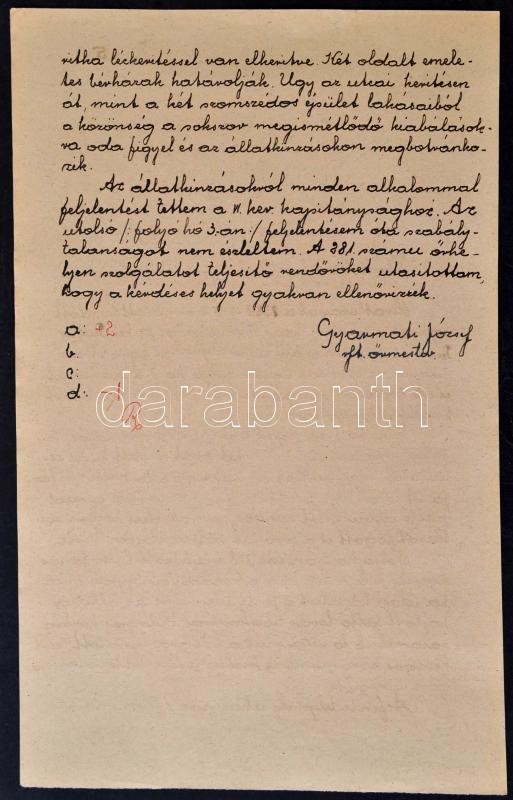 ritka léckerítéssel van elkeritve. Két oldalt emele-
tes bérházak határolják. Ugy az utcai keritésen
át, mint a két szomszédos épület lakásaiból
a közönség a sokszor megismétlődő kiabálások-
ra oda figyel és az állatkinzásokon megbotránko-
zik.
Az állatkinzásokról minden alkalommal
feljelentést tettem a VI. ker. kapitánysághoz. Az
utolsó /: folyó hó 3.-án :/ feljelentésem óta szabály-
talanságot nem észleltem. A 381. számu őrhe-
lyen szolgálatot teljesitő rendőröket utasitottam,
hogy a kérdéses helyet gyakran ellenőrizzék.
a: +2
b.
c:
d: -1
Gyarmati József
őrmester.
darabanth